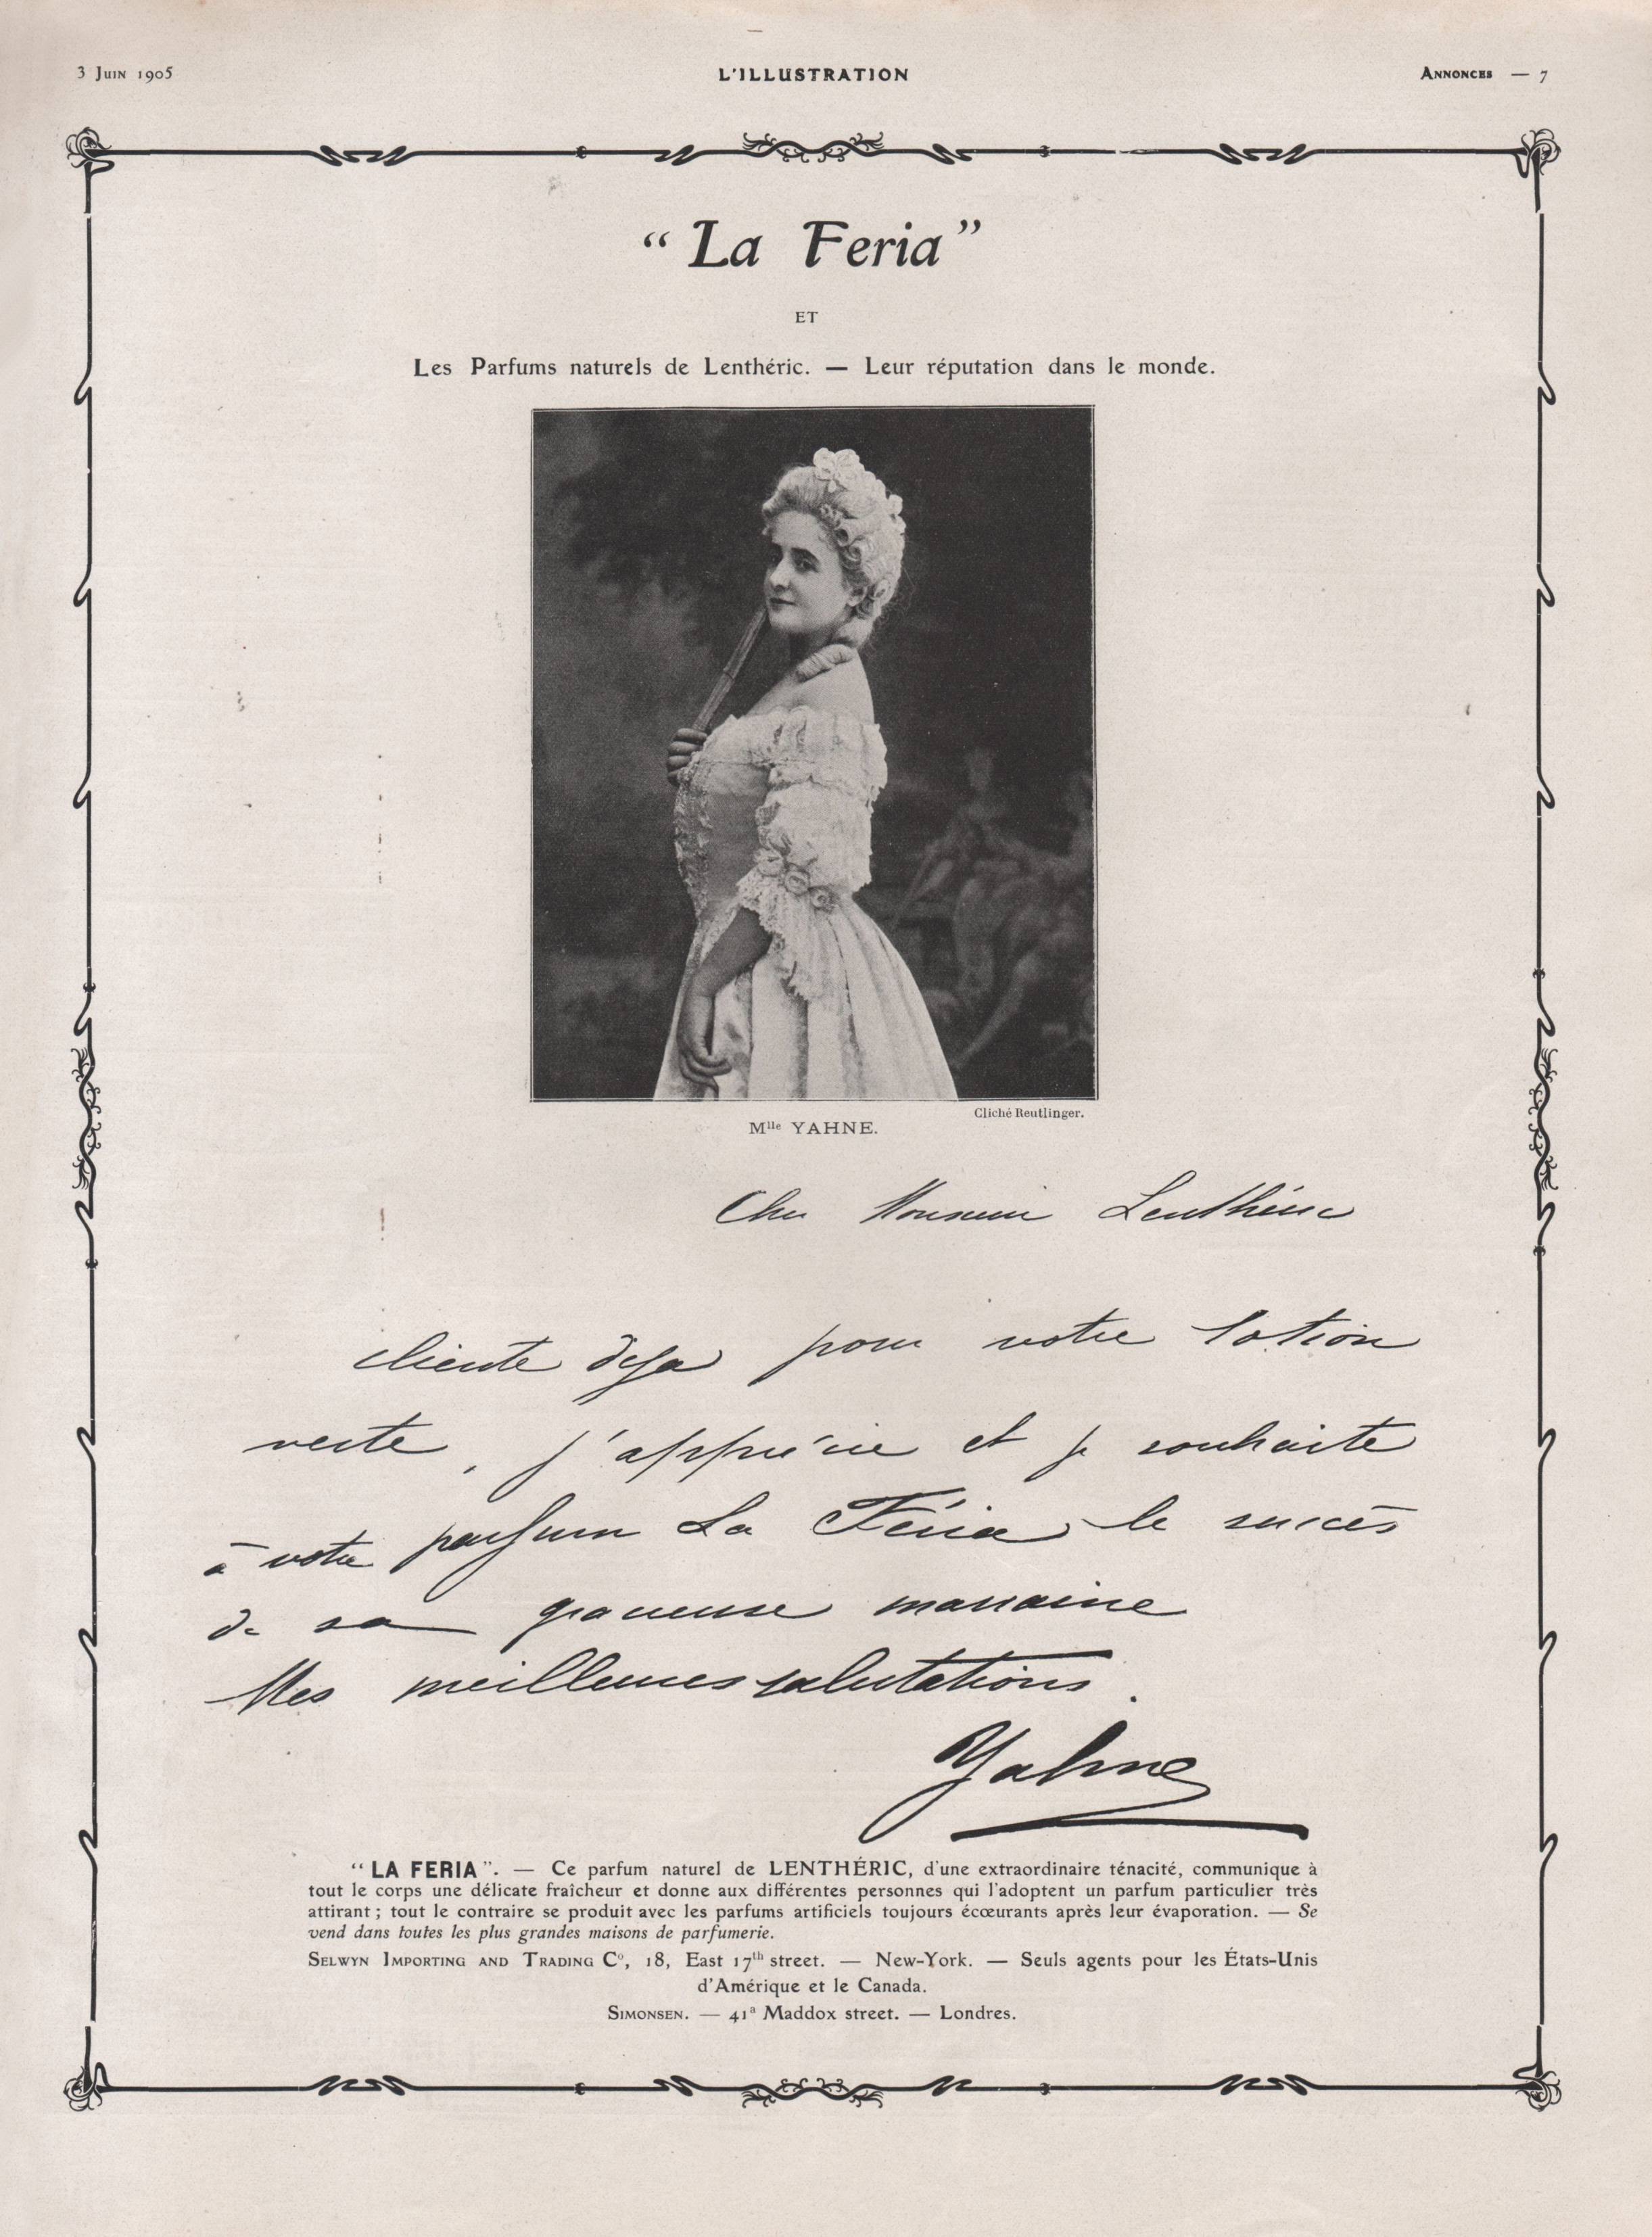 3 Juin 1905
L'ILLUSTRATION
Annonces — 7
“La Feria”
ET
Les Parfums naturels de Lenthéric. — Leur réputation dans le monde.
Cliché Reutlinger.
Mlle YAHNE.
Cher Monsieur Lenthéric
cliente déja pour votre lotion
verte, j'apprécie et je souhaite
à votre parfum La Féria le succès
de sa gracieuse marraine
Mes meilleures salutations.
Yahne
“LA FERIA”. — Ce parfum naturel de LENTHÉRIC, d'une extraordinaire ténacité, communique à
tout le corps une délicate fraîcheur et donne aux différentes personnes qui l'adoptent un parfum particulier très
attirant ; tout le contraire se produit avec les parfums artificiels toujours écœurants après leur évaporation. — Se
vend dans toutes les plus grandes maisons de parfumerie.
Selwyn Importing and Trading Co, 18, East 17th street. — New-York. — Seuls agents pour les États-Unis
d'Amérique et le Canada.
Simonsen. — 41a Maddox street. — Londres.